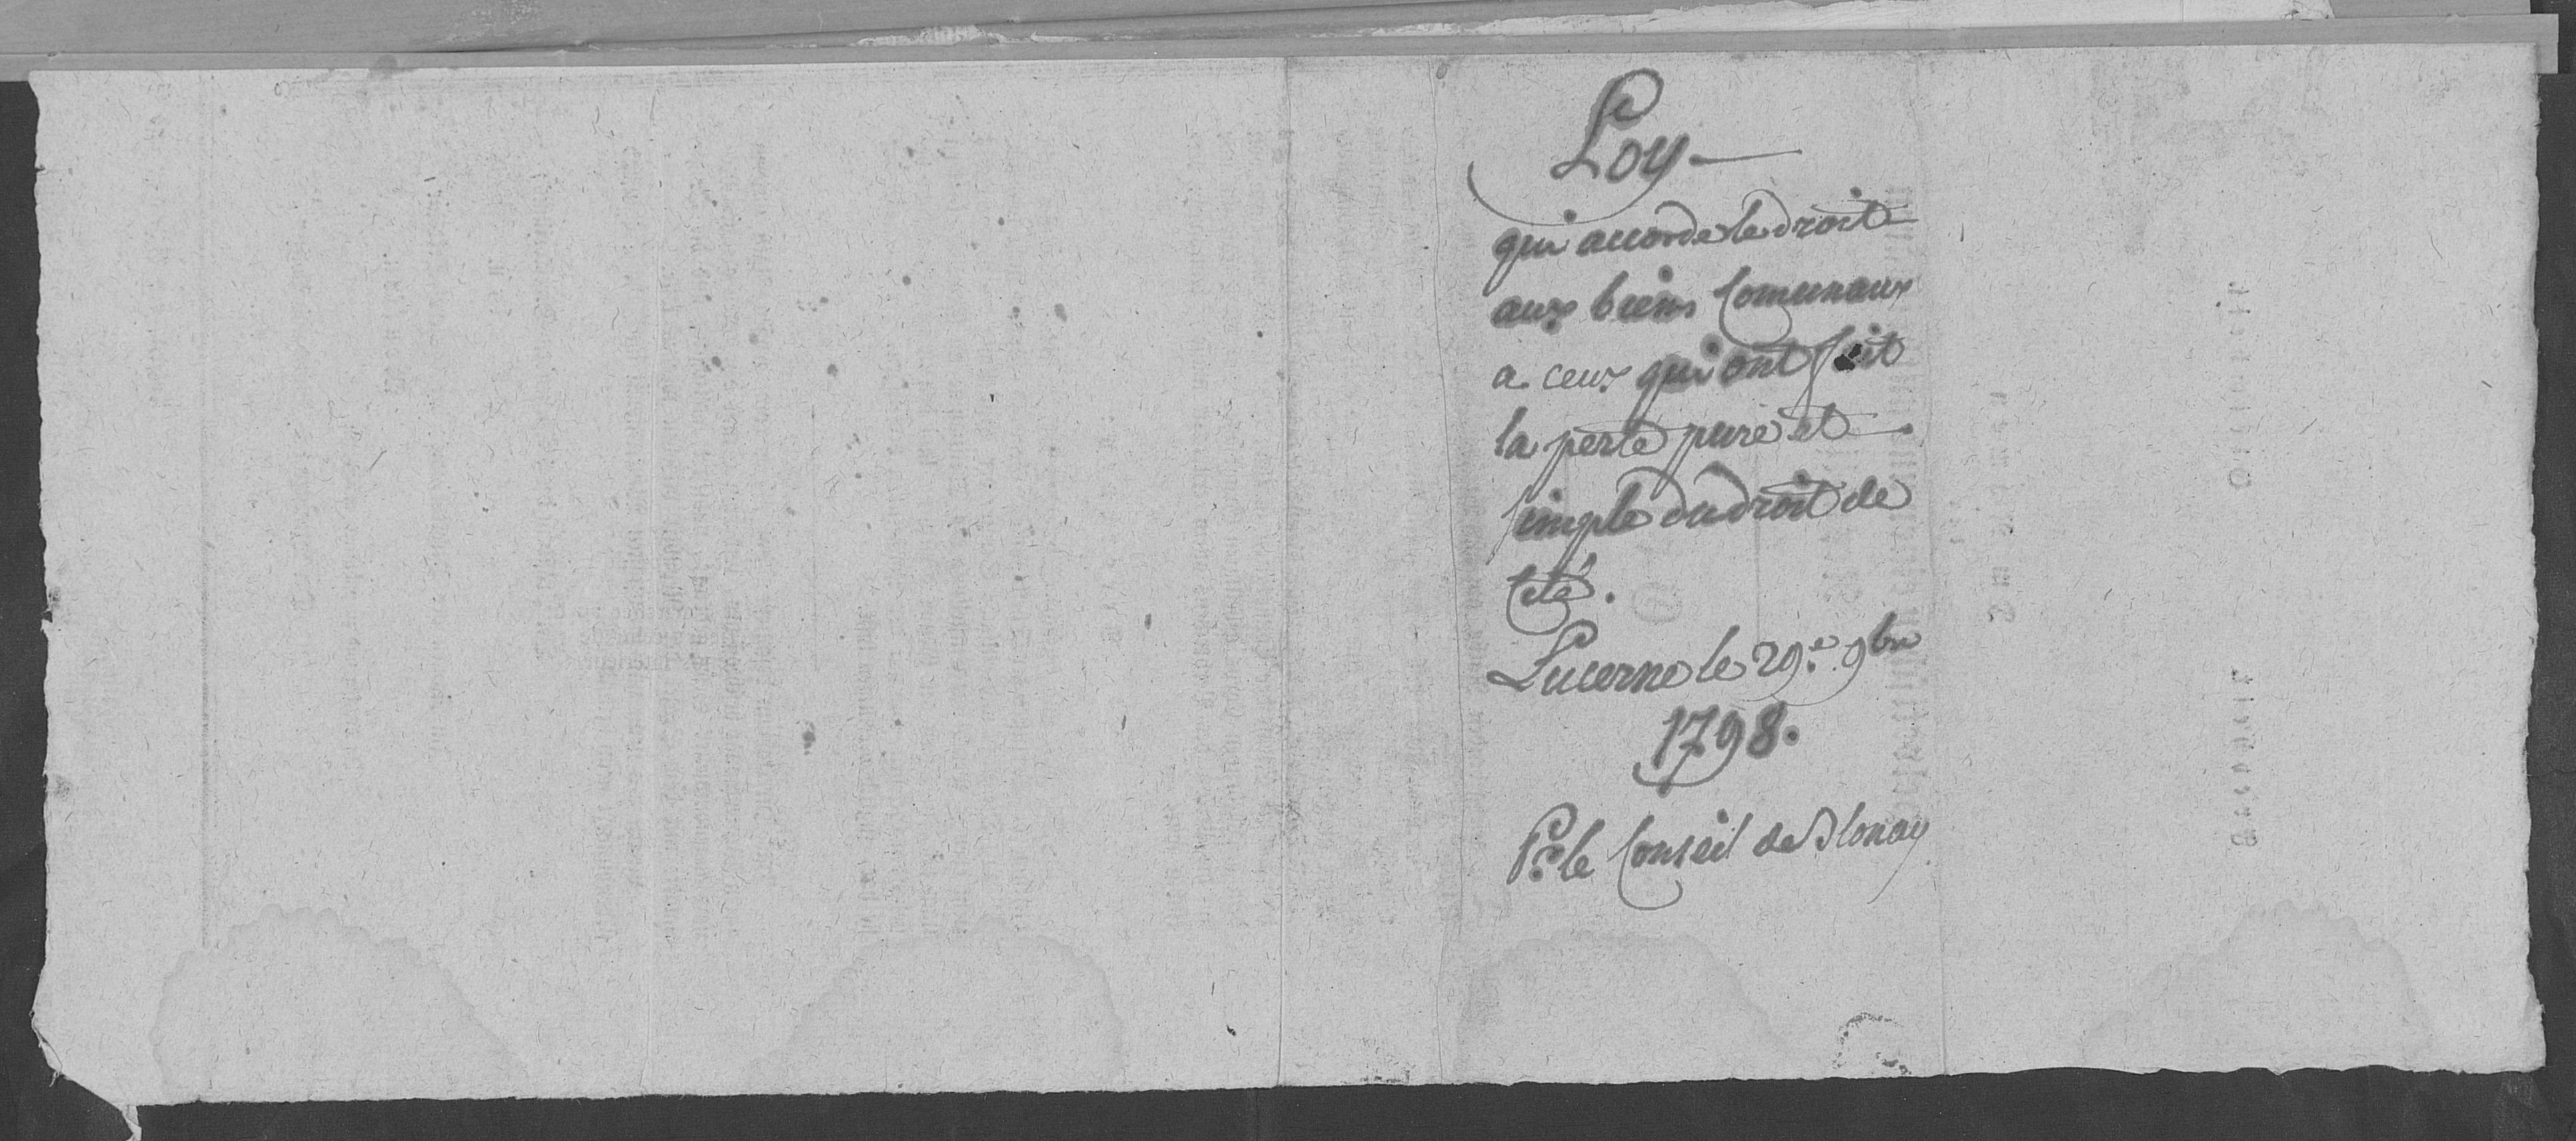 Loy
qui accorde le droit
aux biens Comunaux
a ceux qui ont fait
la perte pure et
simple du droit de
Cité.
Lucerne le 29.e 9bre
1798.
Pr. le Conseil de Blonay